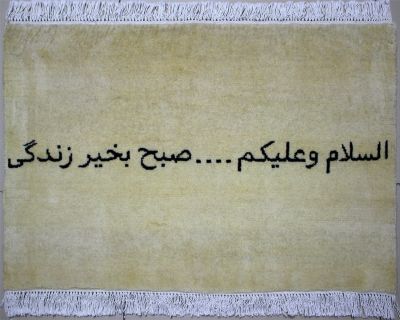 السلام وعلیکم ....صبح بخیر زندگی